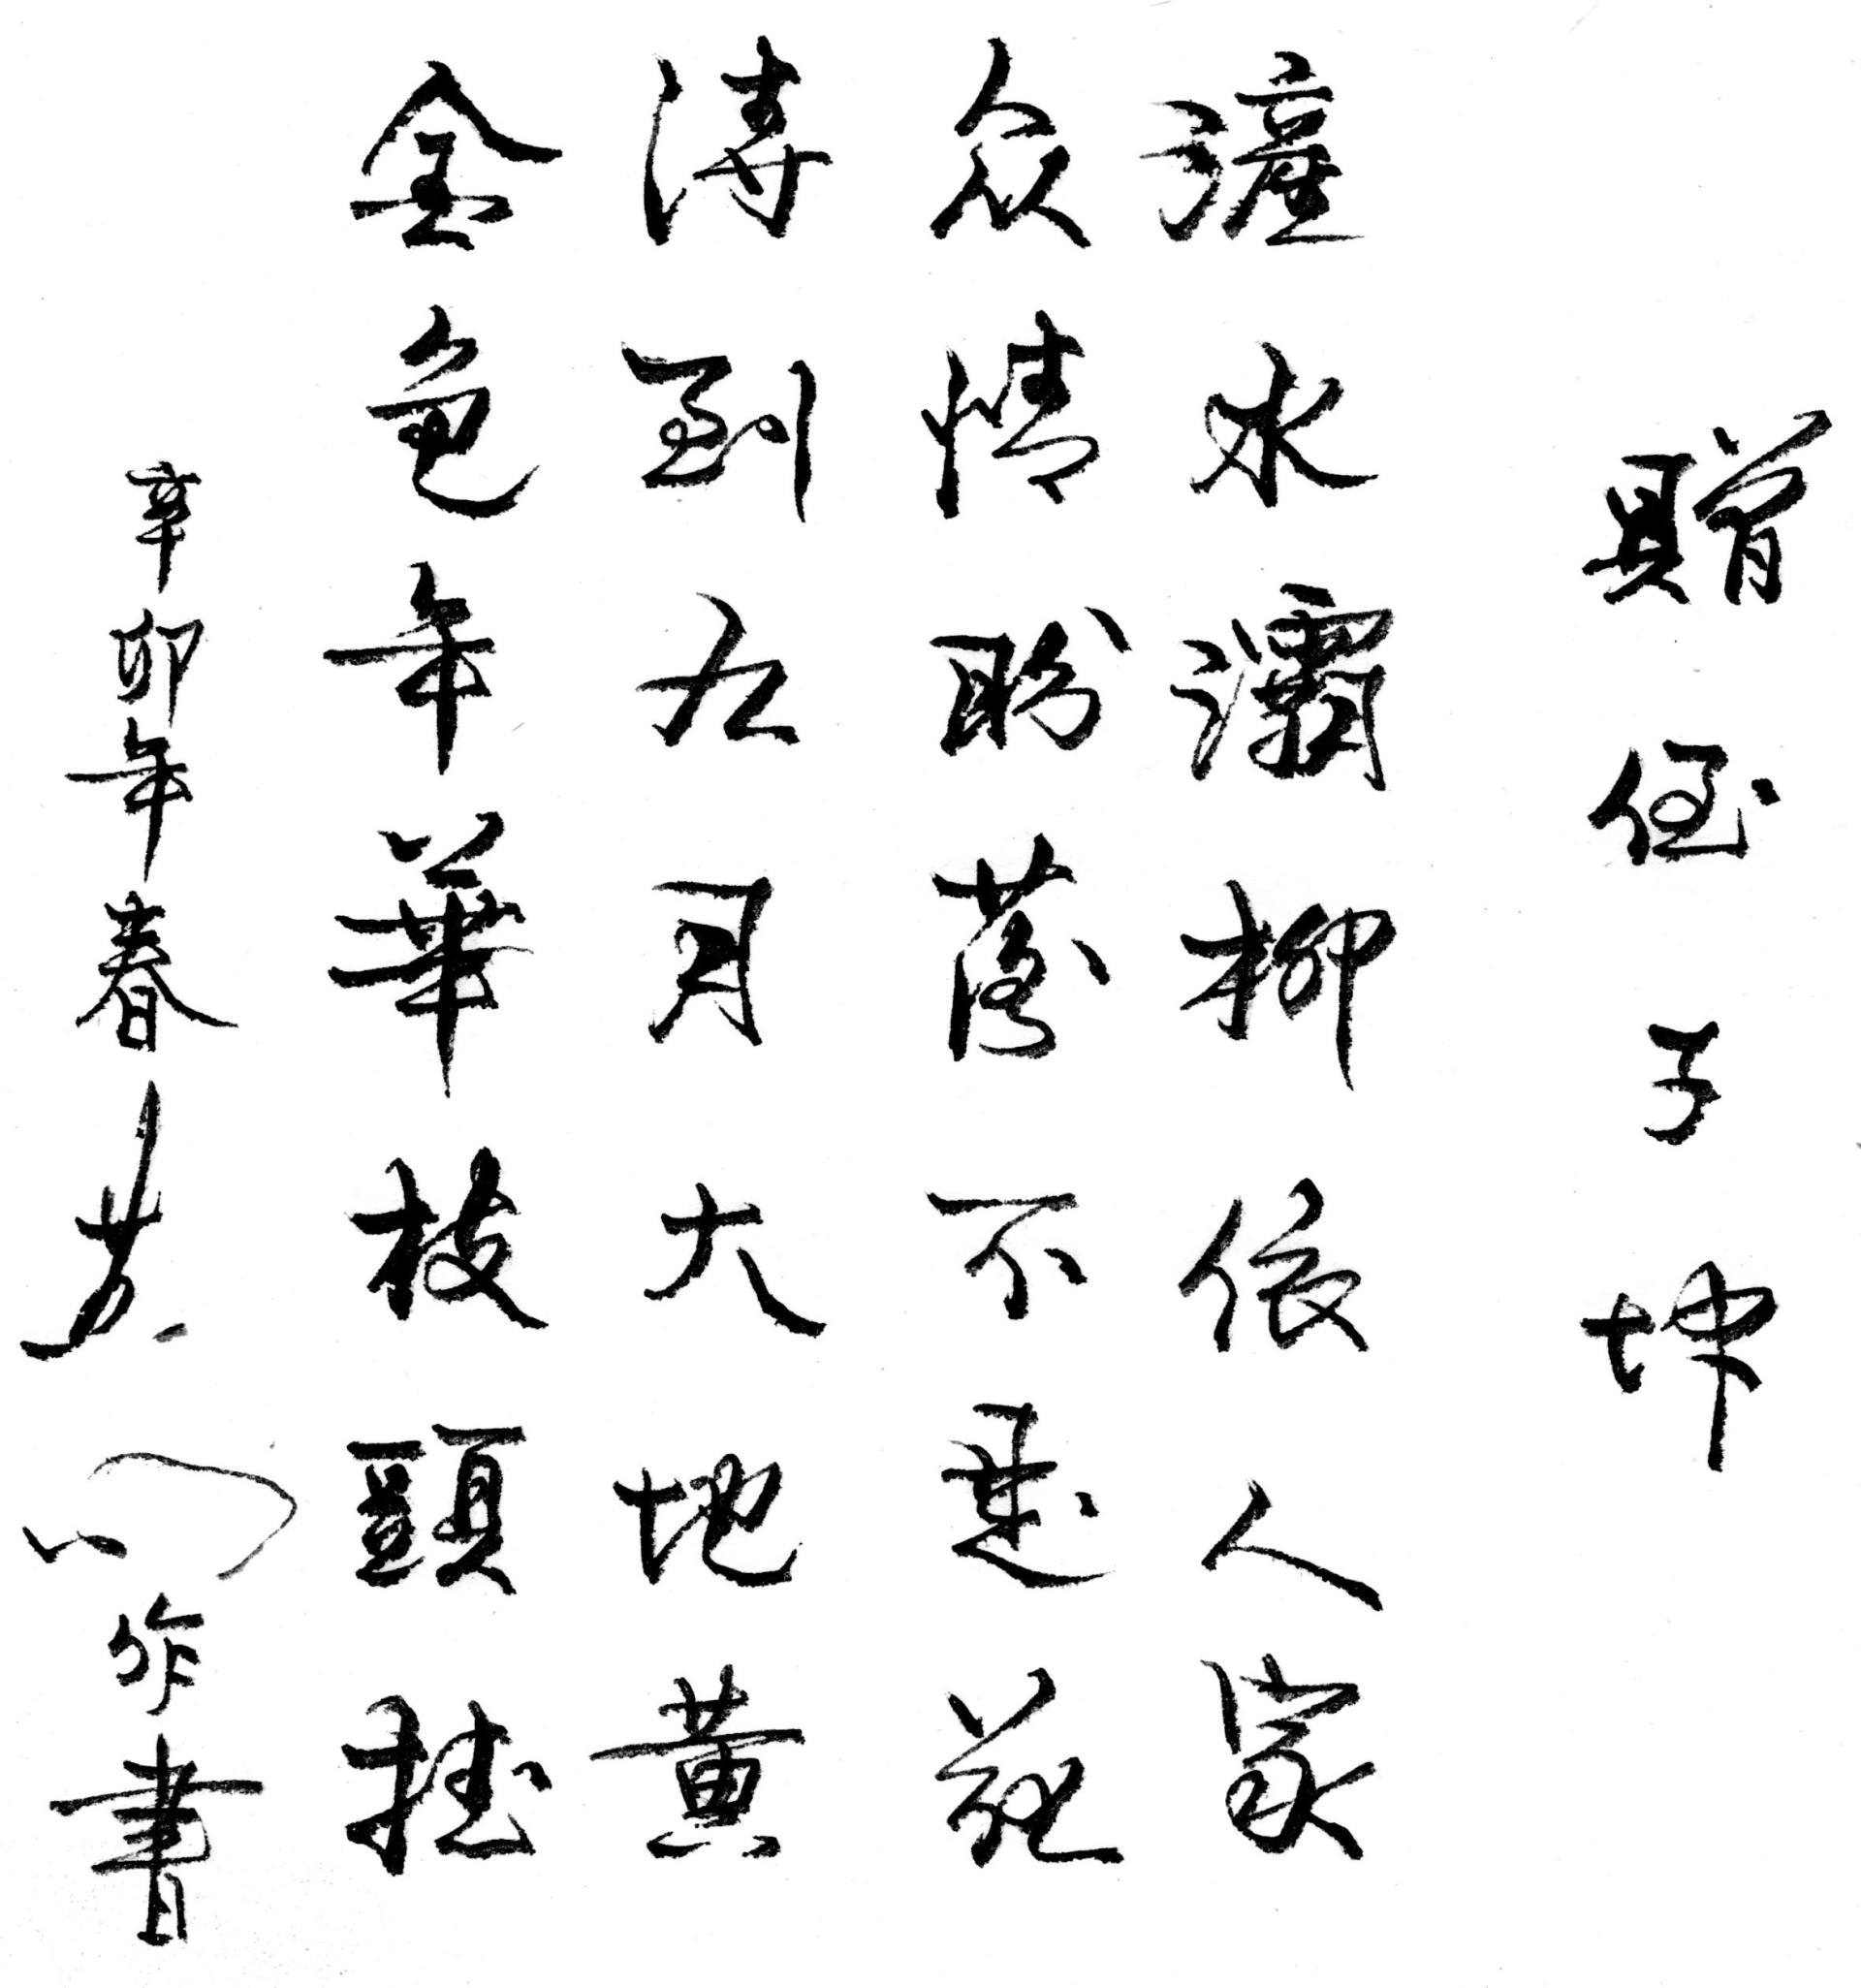 贈侄子坤
滻水灞柳依人家
众情盼蔭不是花
待到九月大地黄
金色年華枝頭挂
辛卯年春 作書